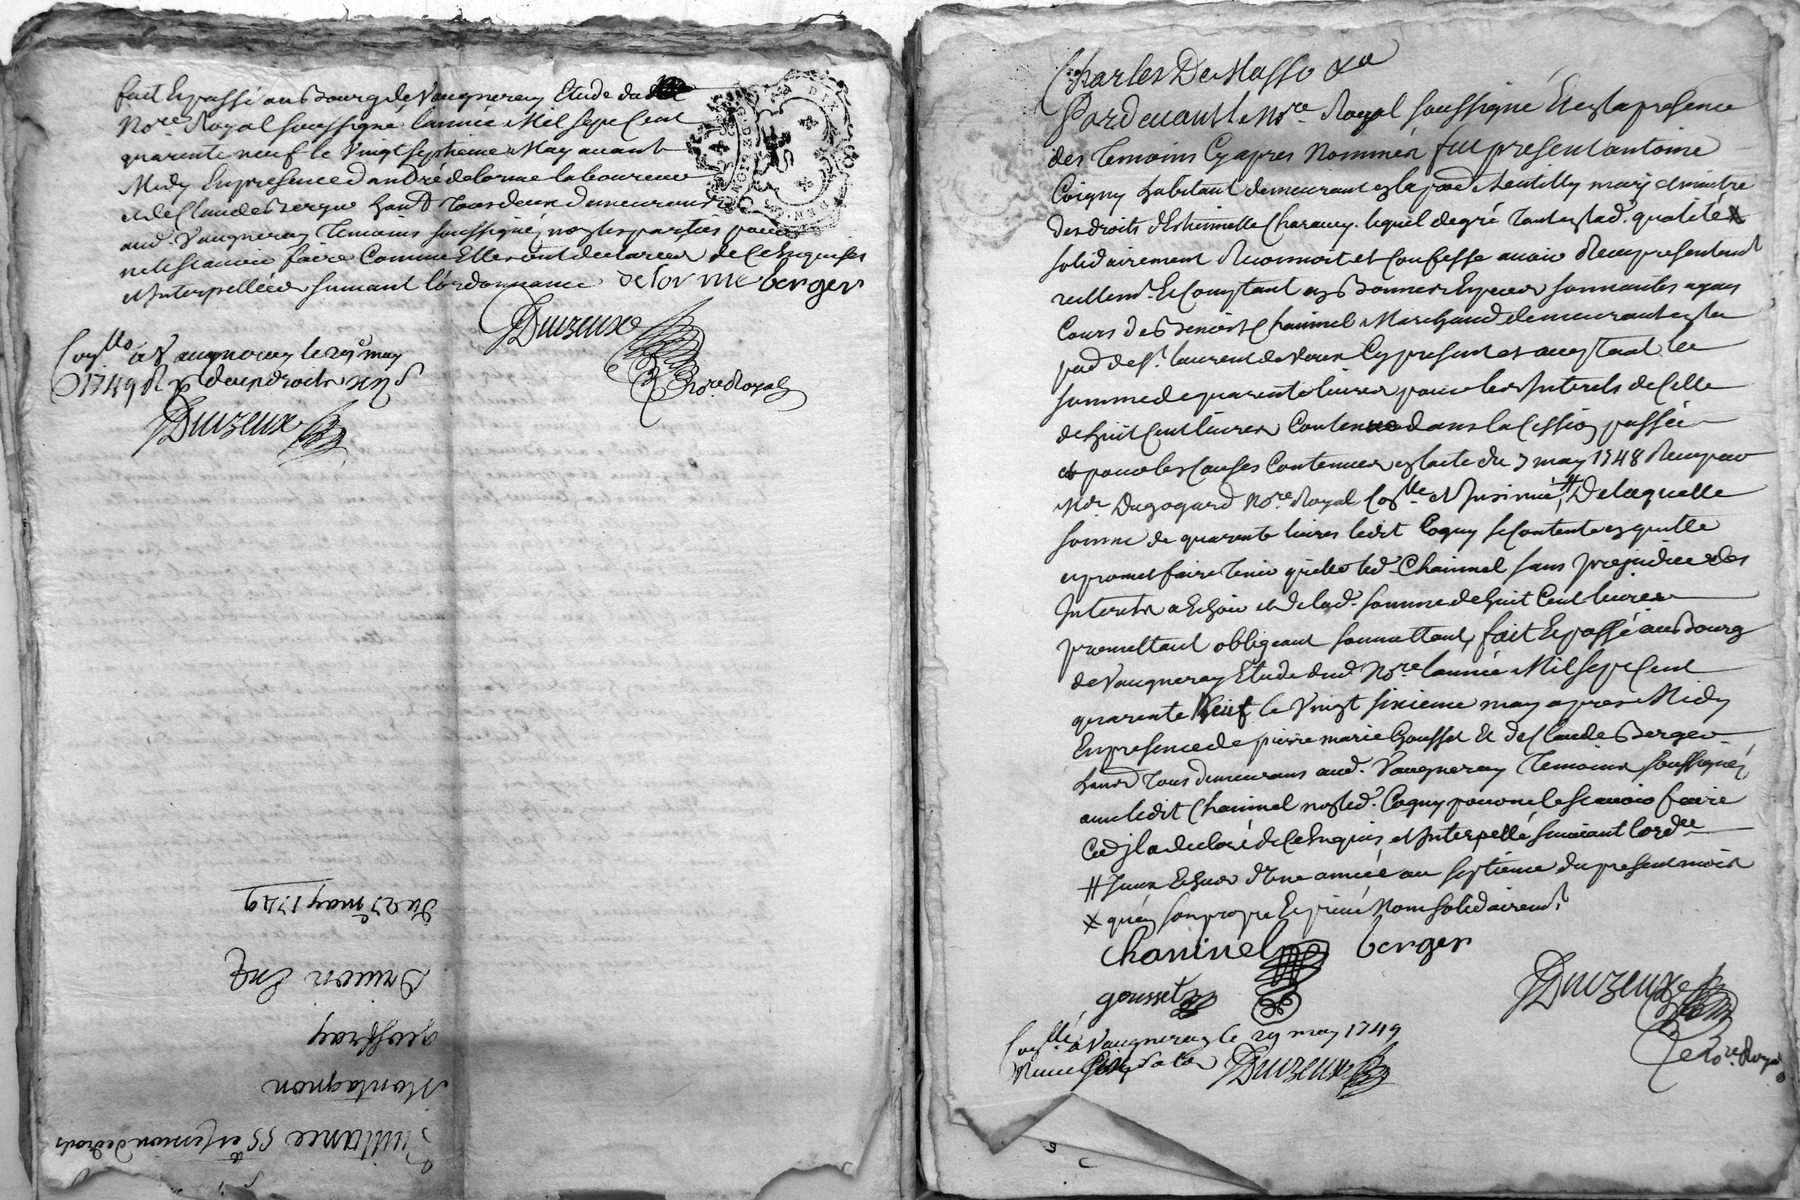 fait Et passé au Bourg de Vaugneray Etude dud
No.re Royal Soussigné l'année Mil Sept Cent
quarente neuf le Vingt Septieme May avant
Midy En presence d'andré delorme laboureur
et de Claude Berger tous deux demeurans
aud. Vaugneray Temoins Soussignés non les parties pour
ne le scavoir faire Comme Elles ont declarées de ce Enquises
et Interpellées suivant l'ordonnance delorme berger
Duizeux
No.re Royal
Con.llé à Vaugneray le 29e may
1749 R deux droits
Duizeux
Quittance SS et cession de droits
Montagnon
geoffray
Du 27e may 1749
Charles De Masso &a
Pardevant le No.re Royal Soussigné Et en la presence
des Temoins Cy apres Nommés fut present antoine
Coigny habitant demeurant en la par. de Lentilly mary et maitre
des droits d'Estiennette Charavay. lequel de gré tant en lad. qualité X
solidairement Reconnoit et Confesse avoir Reçu presentem.t
reellem.t Et Comptant en Bonnes Especes sonnantes ayans
Cours de Benoist Chaninel Marchand demeurant en la
par. de S.t laurent de Vaux Cy present et acceptant la
somme de quarente livres pour les Interets de Celle
de huit Cent livres Contenue dans la Cession passée
et pour les Causes Contenues en l'acte du 7 may 1748 Reçu par
M.e No.re Royal Con.llé et Insinué # De laquelle
somme de quarente livres ledit Cogny se Contente en quitte
et promet faire tenir quitte led. Chaninel sans prejudice des
Interets a Echoir et de lad. somme de huit Cent livres
promettant obligeant soumettant, fait Et passé au Bourg
de Vaugneray Etude dud. No.re l'année Mil Sept Cent
quarente Neuf le Vingt sixieme may apres Midy
En presence de pierre marie Gousset Et de Claude Berger
tous demeurans aud. Vaugneray Temoins Soussignés
avec ledit Chaninel non led. Cogny pour ne le scavoir faire
Ced. jl a declaré de ce Enquis et Interpellé suivant l'ord.ce
# Iceux Echus d'une année au septieme du present mois
X qu'en son propre Et privé Nom solidairem.t
chaninel berger
gousset
Duizeux
No.re Royal
Con.llé à Vaugneray le 29 may 1749
Duizeux